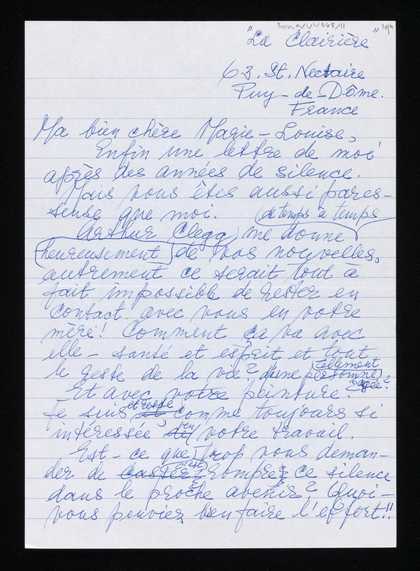 "La Clairière"
63. St. Nectaire
Puy-de-Dôme.
France
Ma bien chère Marie-Louise,
Enfin une lettre de moi
après des années de silence.
Mais vous êtes aussi pares-
seuse que moi. (de temps à temps
Arthur Clegg me donne
heureusement de vos nouvelles,
autrement ce serait tout à
fait impossible de rester en
contact avec vous en votre
mère! Comment ça va avec
elle - santé et esprit et tout
le reste de la vie d'une personne
tellement agée?
Et avec votre peinture?
Je suis et reste comme toujours si
intéressée en votre travail.
Est-ce que trop vous deman-
der de casser, rompre ce silence
dans le proche avenir? Quoi-
vous pouviez bien faire l'effort!!